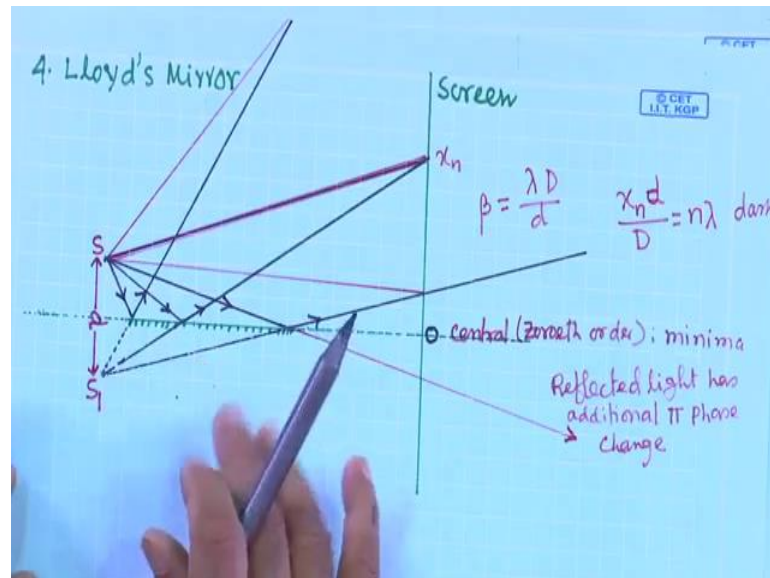 4. Lloyd's Mirror
Screen
© CET
I.I.T. KGP
xₙ
β = λD/d
xₙd/D = nλ
S
S₁
O central (Zeroeth order); minima
Reflected light has
additional π phase
change